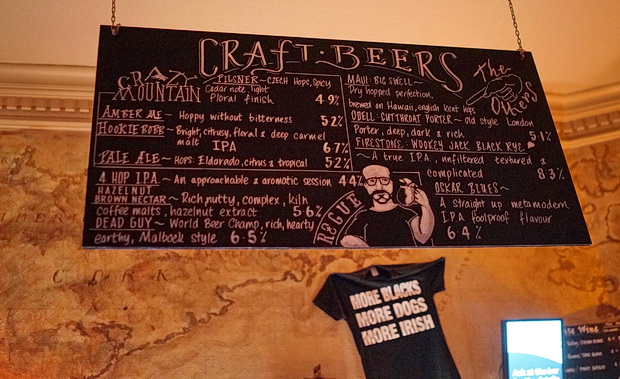 CRAFT·BEERS
CRAZY
MOUNTAIN
PILSNER ~ CZECH Hops, Spicy
Cedar note, light
Floral finish 4·9%
AMBER ALE ~ Hoppy without bitterness 5·2%
HOOKIEBOBB ~ Bright, citrusy, floral & deep carmel
malt IPA 6·7%
PALE ALE ~ HOPS: Eldorado, citrus & tropical 5·2%
4 HOP IPA ~ An approachable & aromatic session 4·4%
HAZELNUT
BROWN NECTAR ~ Rich, nutty, complex, kiln
coffee malts, hazelnut extract 5·6%
DEAD GUY ~ World Beer Champ, rich, hearty
earthy, Maibock style 6·5%
ROGUE
The
Others
MAUI·BIG SWELL ~
Dry hopped perfection,
brewed on Hawaii, english kent hops
ODELL·CUTTHROAT PORTER ~ Old style London
Porter, deep, dark & rich 5·1%
FIRESTONE: WOOKEY JACK BLACK RYE
~ A true IPA, unfiltered textured &
complicated 8·3%
OSKAR BLUES ~
A straight up metamodern
I.P.A foolproof flavour
6·4%
MORE BLACKS
MORE DOGS
MORE IRISH
CORK
Ask at the bar
Wine